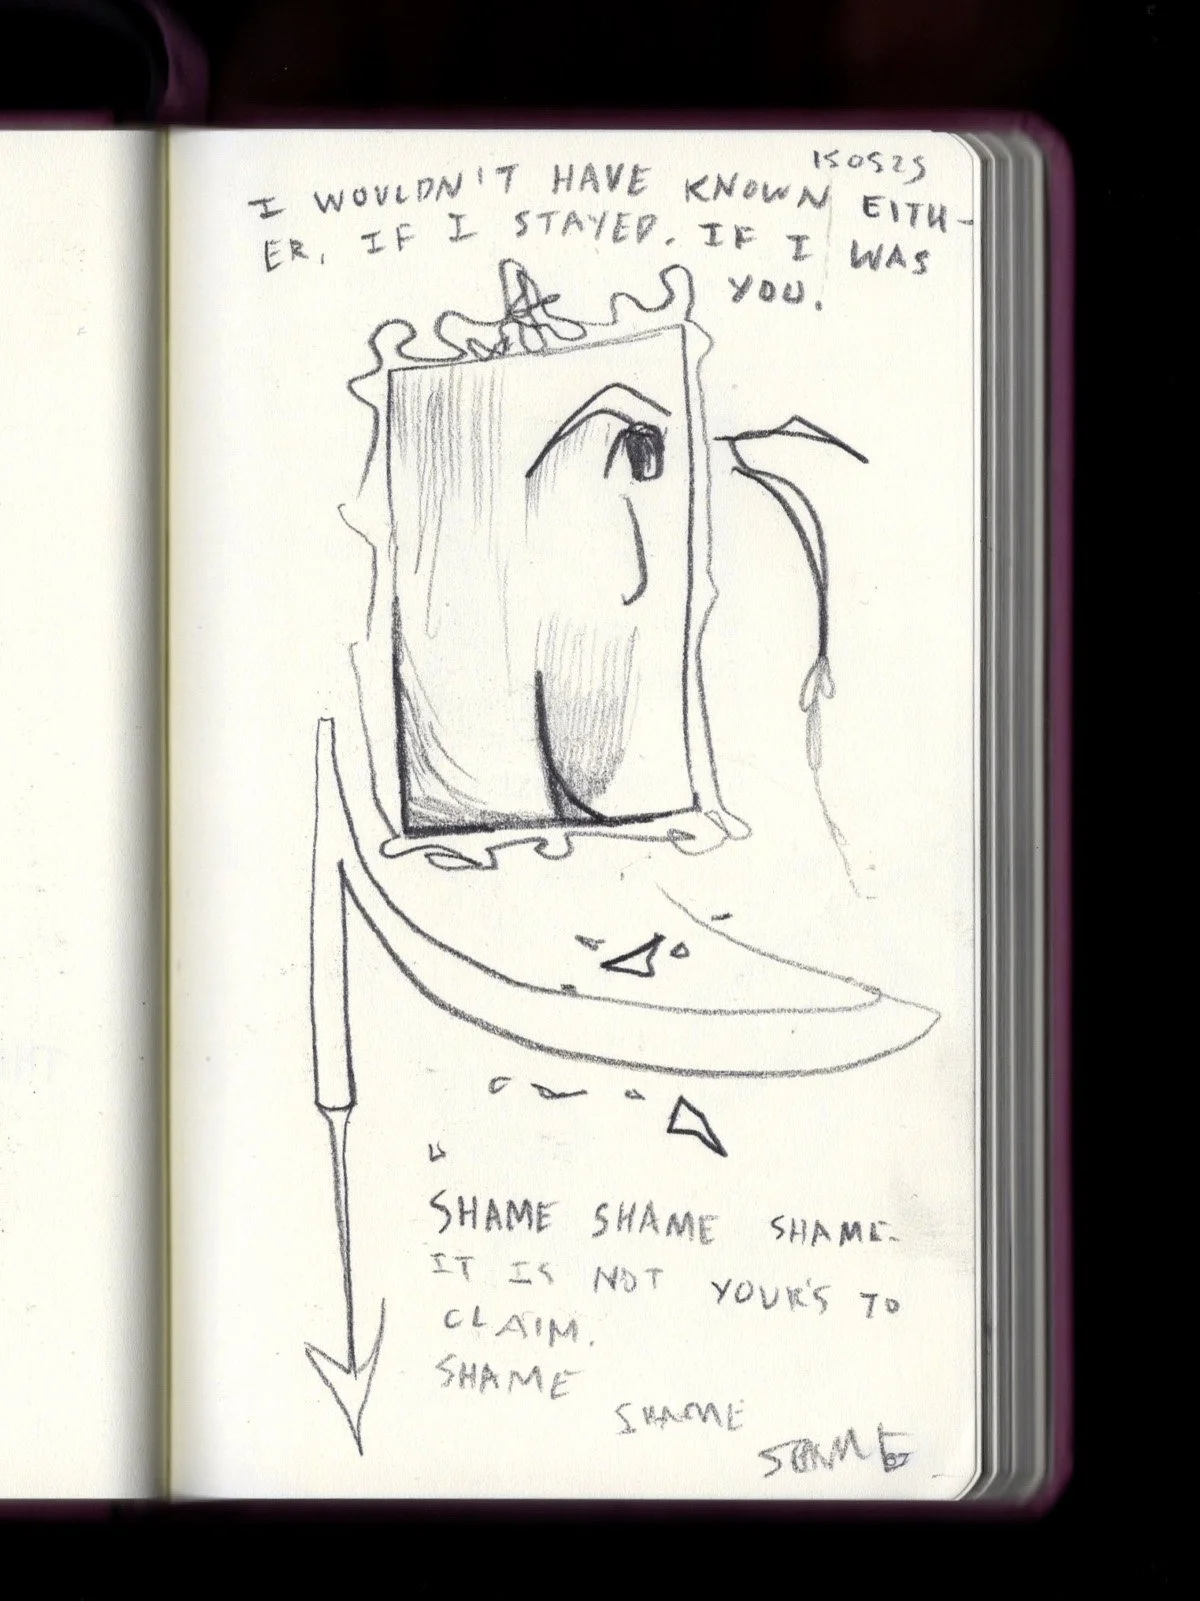 150525
I WOULDN'T HAVE KNOWN EITH-
ER, IF I STAYED. IF I WAS
YOU.
SHAME SHAME SHAME.
IT IS NOT YOUR'S TO
CLAIM.
SHAME
SHAME
SHAME